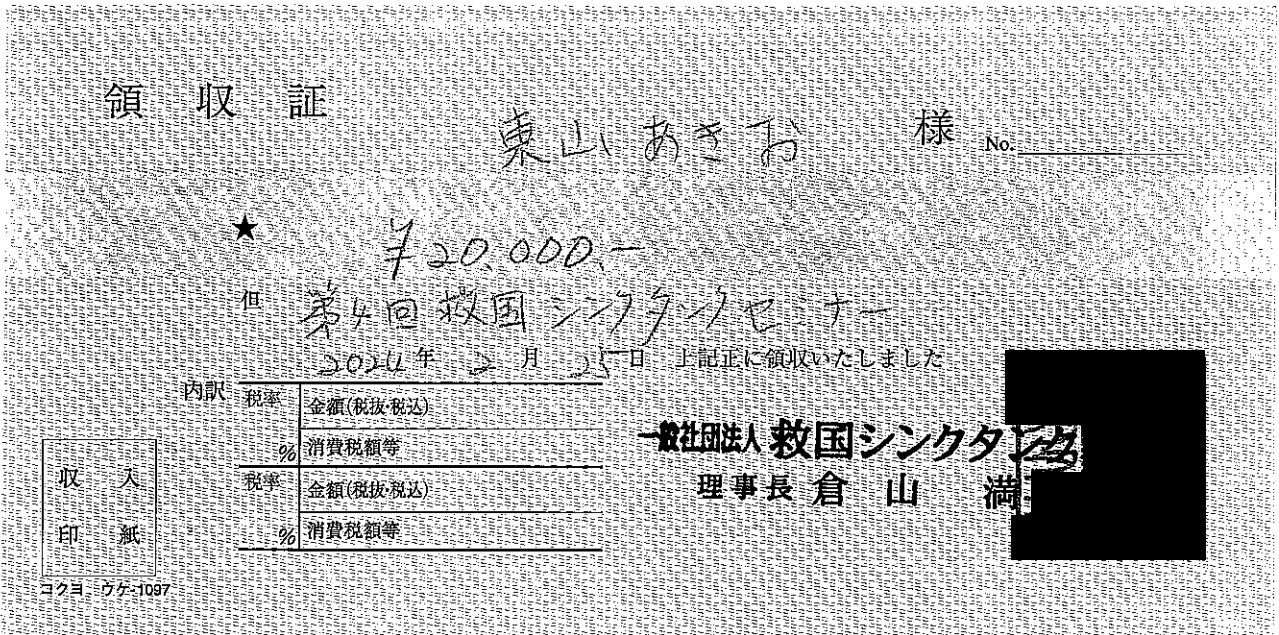 領収証
東山あきお 様 No.
★ ¥20,000.-
但 第4回救国シンクタンクセミナー
2024年 2月 25日 上記正に領収いたしました
内訳 税率 金額(税抜・税込)
% 消費税額等
税率 金額(税抜・税込)
% 消費税額等
収入
印紙
コクヨ ウケ-1097
一般社団法人 救国シンクタンク
理事長 倉山 満